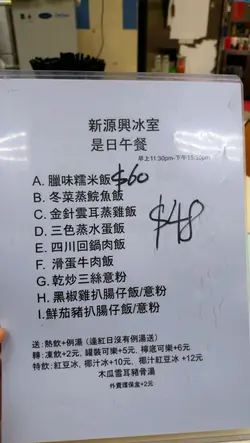 新源興冰室
是日午餐
早上11:30pm-下午15:30pm
A. 臘味糯米飯 $60
B. 冬菜蒸鯇魚飯
C. 金針雲耳蒸雞飯
D. 三色蒸水蛋飯
$48
E. 四川回鍋肉飯
F. 滑蛋牛肉飯
G. 乾炒三絲意粉
H. 黑椒雞扒腸仔飯/意粉
I. 鮮茄豬扒腸仔飯/意粉
送：熱飲+例湯 (逢紅日沒有例湯送)
轉：凍飲+2元, 罐裝可樂+5元, 檸底可樂+6元
特飲：紅豆冰, 椰汁冰+10元, 椰汁紅豆冰 +12元
木瓜雪耳豬骨湯
外賣環保盒+2元